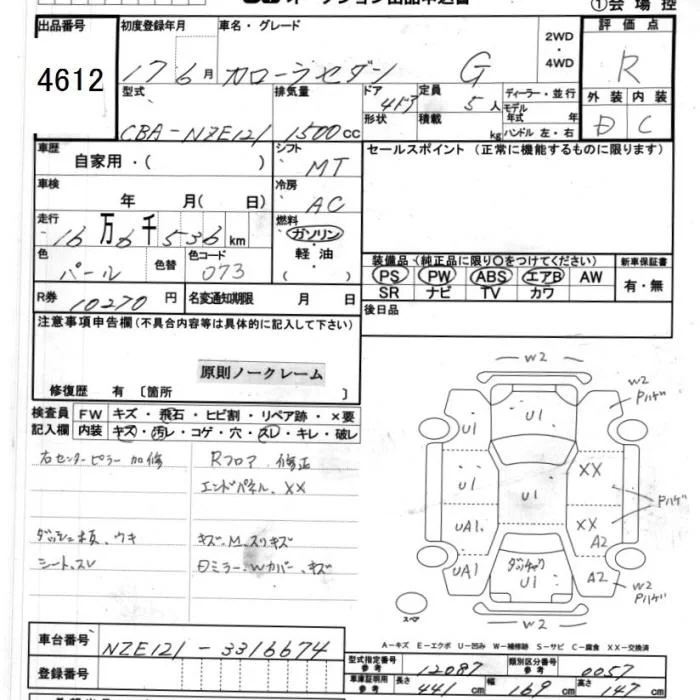 オークション出品申込書
①会場控
出品番号 初度登録年月 車名・グレード 2WD・4WD 評価点
4612 17 6月 カローラセダン G R
型式 排気量 ドア 定員 ディーラー・並行 外装 内装
CBA-NZE121 1500cc 4ドア 5人 モデル年式 年 D C
形状 積載 kg ハンドル 左・右
車歴 シフト セールスポイント (正常に機能するものに限ります)
自家用・( ) MT
車検 冷房
年 月( 日) AC
走行 燃料
16万6千536km ガソリン
色 色替 色コード 軽油 装備品 (純正品に限り○をつけてください) 新車保証書
パール 073 ・( ) PS PW ABS エアB AW 有・無
SR ナビ TV カワ
R券 10270円 名変通知期限 月 日 後日品
注意事項申告欄 (不具合内容等は具体的に記入して下さい)
原則ノークレーム
修復歴 有 〔箇所 〕
検査員 FW キズ・飛石・ヒビ割・リペア跡・×要
記入欄 内装 キズ・汚レ・コゲ・穴・スレ・キレ・破レ
右センターピラー 加修 Rフロア 修正
エンドパネル、XX
ダッシュ板、ウキ キズ、M、スリキズ
シート、スレ ミラー、Wカバー、キズ
W2
U1 U1 W2 Pハゲ
U1 U1 XX
Pハゲ
UA1. XX A2
UA1 U1 A2 W2 Pハゲ
スペア
W2
A-キズ E-エクボ U-凹み W-補修跡 S-サビ C-腐食 XX-交換済
車台番号 NZE121-3316674
型式指定番号 参考 12087 類別区分番号 参考 0057
登録番号
車庫証明用 参考 長さ 441cm 幅 169cm 高さ 147cm